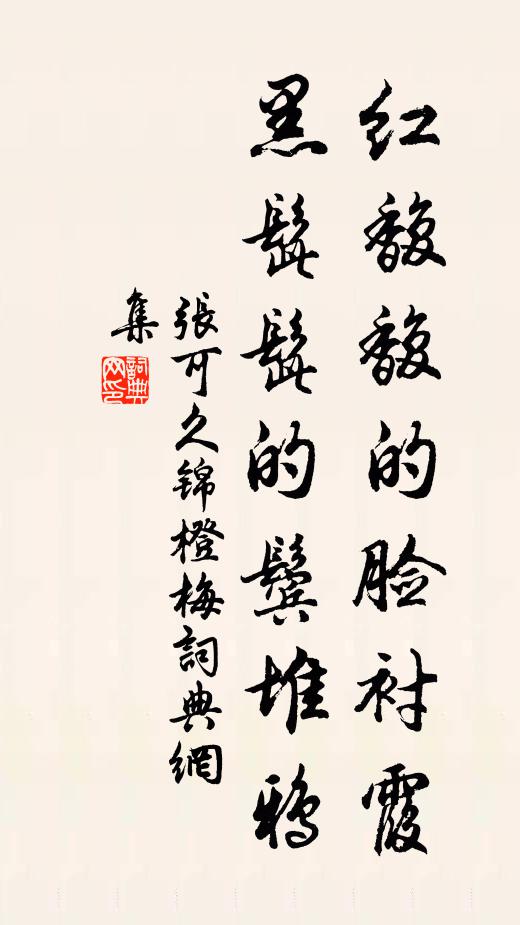 红馥馥的脸衬霞
黑髭髭的鬓堆鸦
張可久锦橙梅詞典網
集
詞典
网印